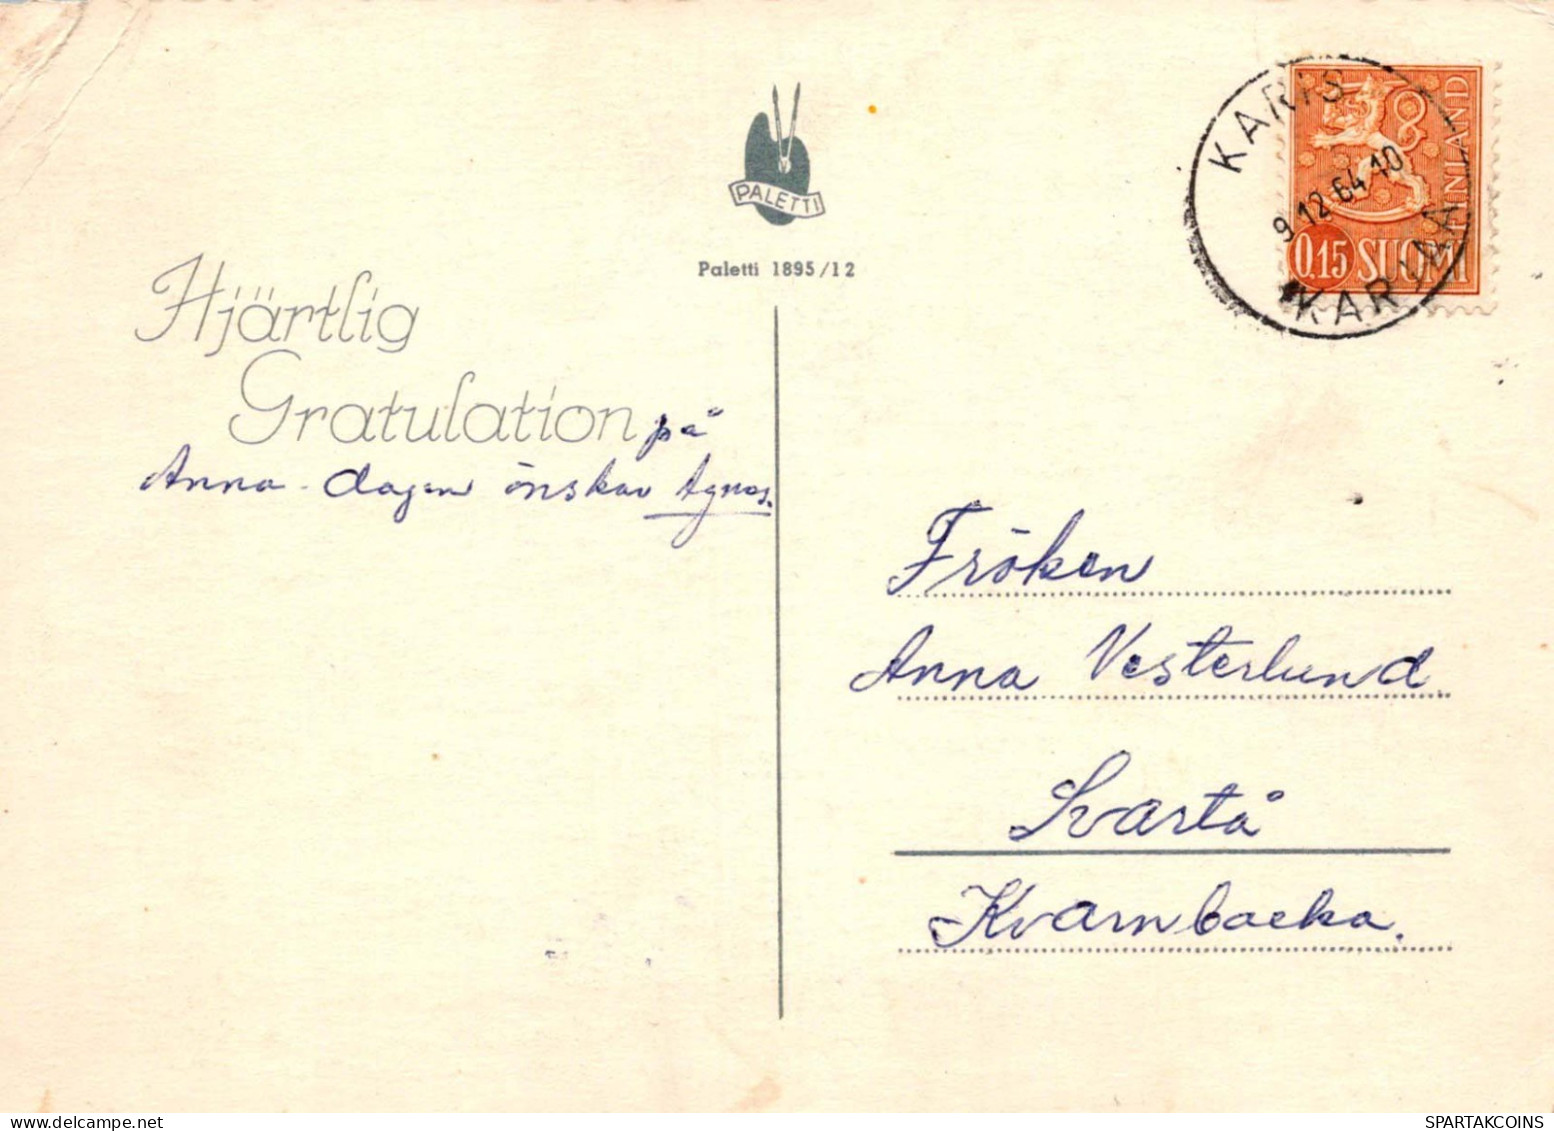 PALETTI
Paletti 1895/12
KARIS
9.12.64.10
KARJAA
FINLAND
0,15 SUOMI
Hjärtlig
Gratulation på
Anna-dagen önskar Agnes.
Fröken
Anna Vesterlund
Svartå
Kvarnbacka.
SPARTAKCOINS